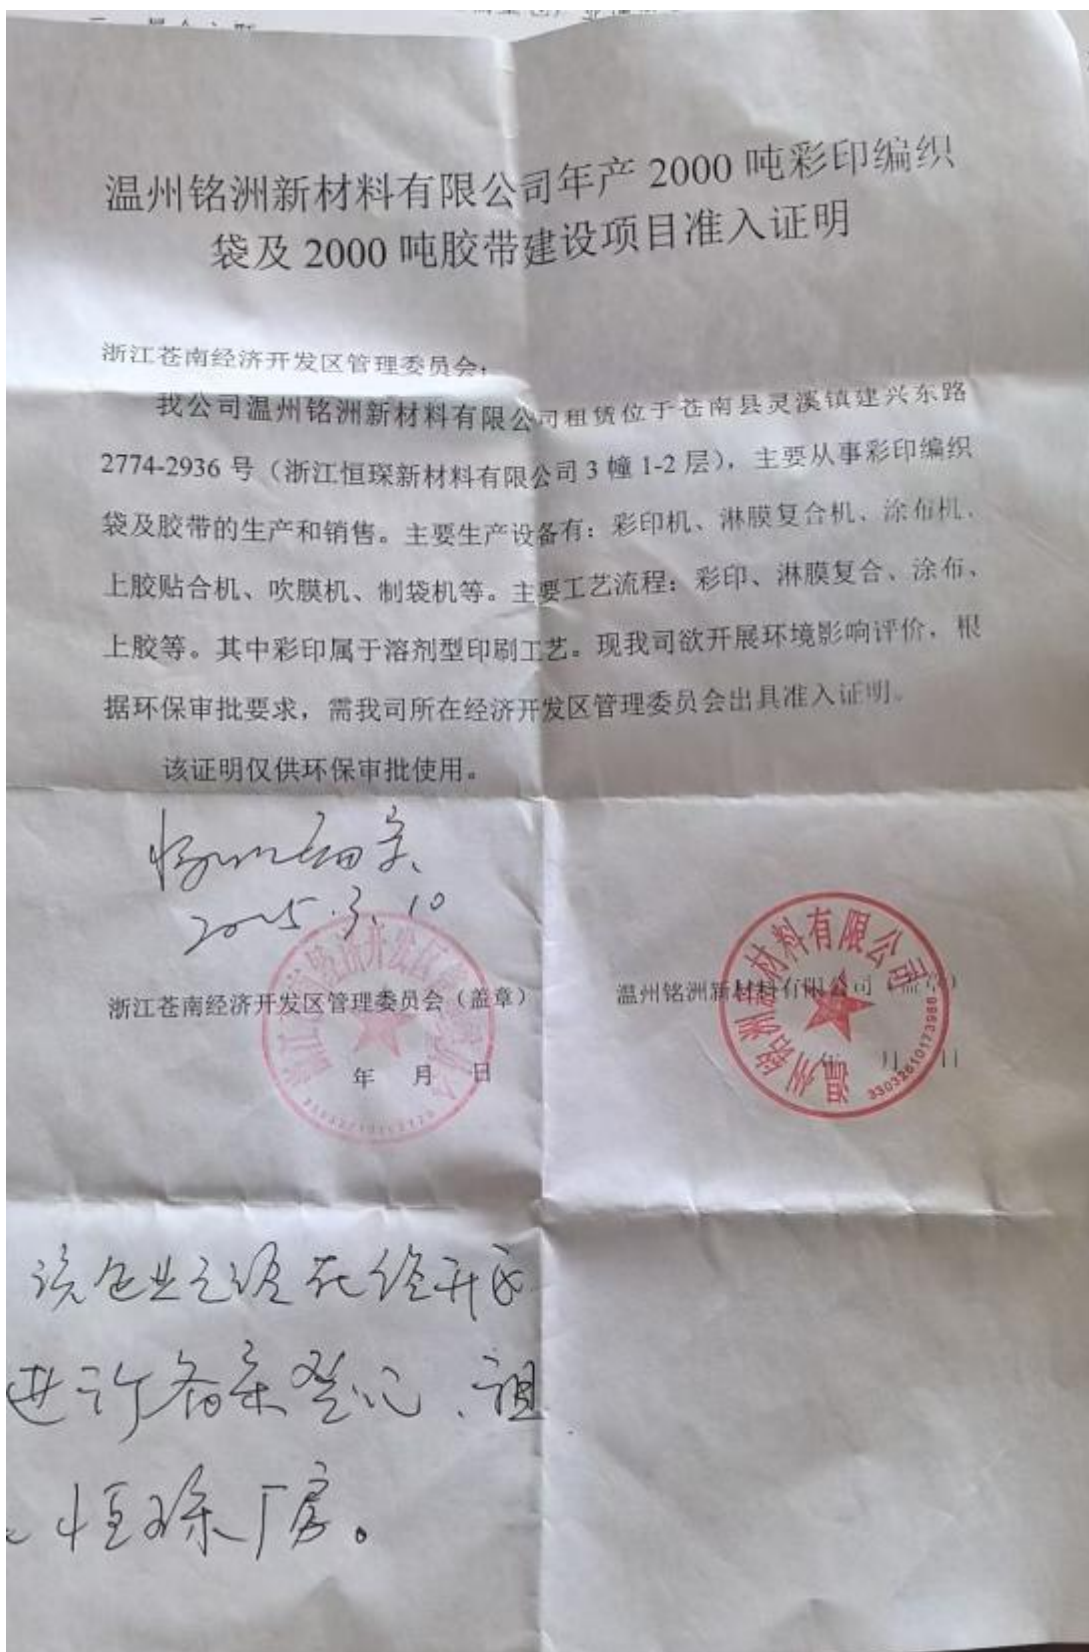 温州铭洲新材料有限公司年产 2000 吨彩印编织
袋及 2000 吨胶带建设项目准入证明
浙江苍南经济开发区管理委员会:
我公司温州铭洲新材料有限公司租赁位于苍南县灵溪镇建兴东路
2774-2936 号（浙江恒琛新材料有限公司 3 幢 1-2 层），主要从事彩印编织
袋及胶带的生产和销售。主要生产设备有：彩印机、淋膜复合机、涂布机、
上胶贴合机、吹膜机、制袋机等。主要工艺流程：彩印、淋膜复合、涂布、
上胶等。其中彩印属于溶剂型印刷工艺。现我司欲开展环境影响评价，根
据环保审批要求，需我司所在经济开发区管理委员会出具准入证明。
该证明仅供环保审批使用。
2025.3.10
浙江苍南经济开发区管理委员会（盖章）
温州铭洲新材料有限公司（盖章）
年 月 日
年 月 日
温州铭洲新材料有限公司
该企业已经在经开区
进行备案登记、租
恒琛厂房。